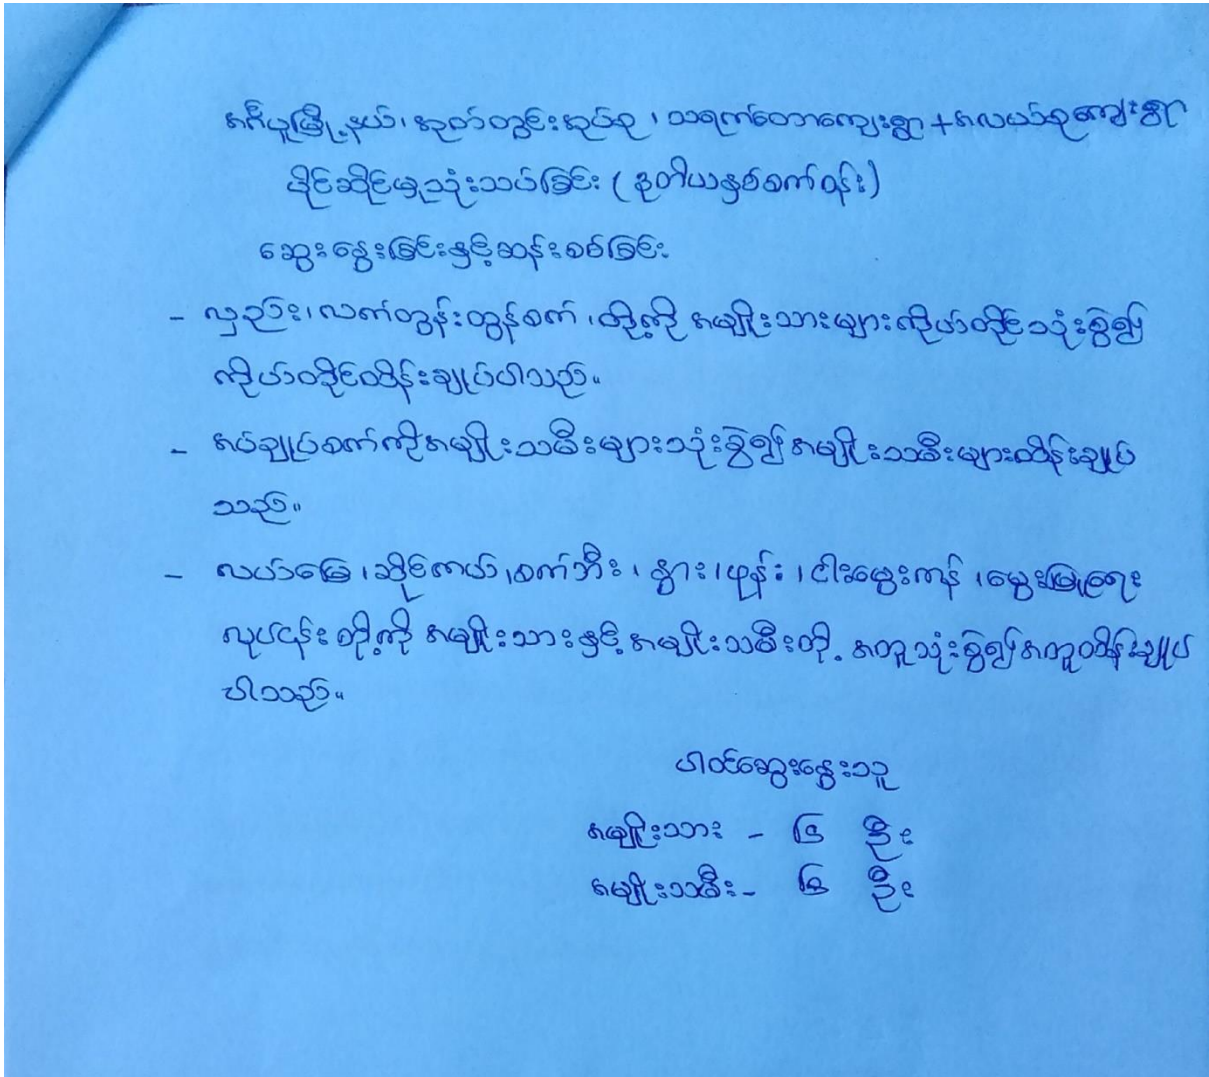 စဉ့်ကူမြို့နယ်၊ အုတ်တွင်းအုပ်စု၊ သရက်တောကျေးရွာ + အလယ်စုကျေးရွာ
ပိုင်ဆိုင်မှုသုံးသပ်ခြင်း (ဒုတိယနှစ်စက်ဝန်း)
ဆွေးနွေးခြင်းနှင့်ဆန်းစစ်ခြင်း
- လှည်း၊ လက်တွန်းထွန်စက်၊ တို့ကို အမျိုးသားများကိုယ်တိုင်သုံးစွဲ၍
ကိုယ်တိုင်ထိန်းချုပ်ပါသည်။
- အပ်ချုပ်စက်ကိုအမျိုးသမီးများသုံးစွဲ၍ အမျိုးသမီးများထိန်းချုပ်
သည်။
- လယ်မြေ၊ ဆိုင်ကယ်၊ စက်ဘီး၊ နွား၊ ဖုန်း၊ ငါးမွေးကန်၊ မွေးမြူရေး
လုပ်ငန်းတို့ကို အမျိုးသားနှင့် အမျိုးသမီးတို့ အတူသုံးစွဲ၍အတူထိန်းချုပ်
ပါသည်။
ပါဝင်ဆွေးနွေးသူ
အမျိုးသား - ဦး
အမျိုးသမီး - ဦး